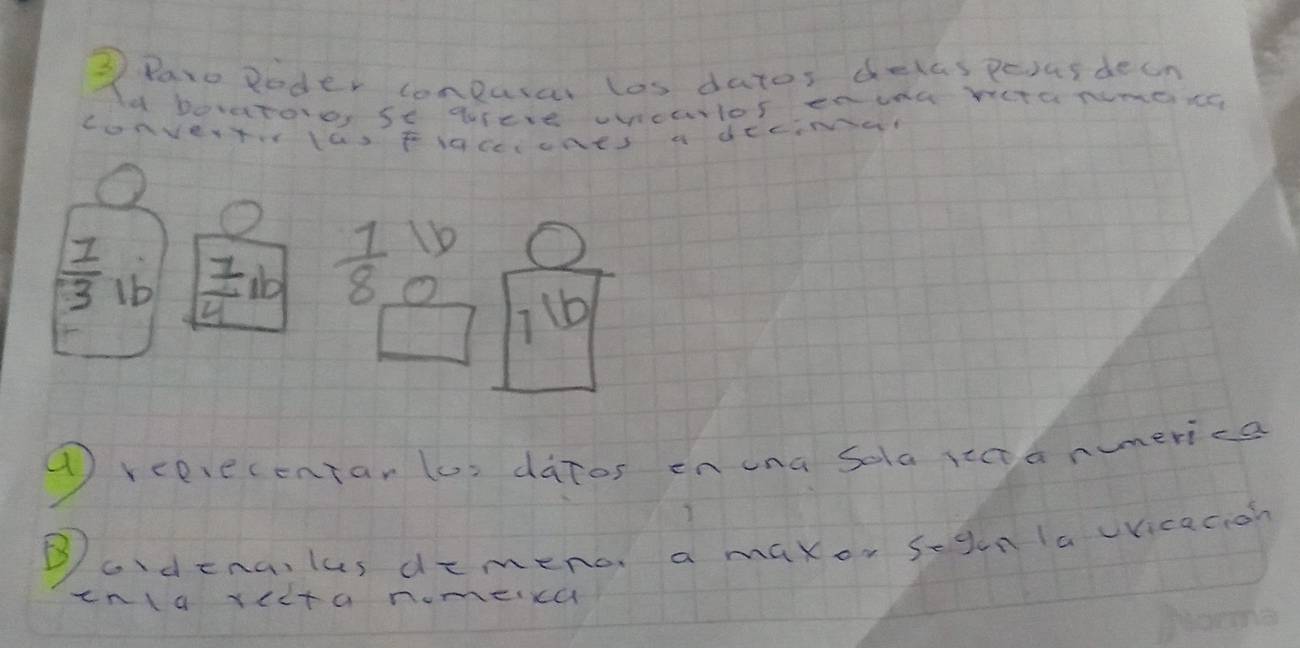 3) Paro Poder conparar los datos delas pesas de un
la boratorio, se quiere uvicarlos en una recta numerica
convertir las Fracciones a decimal
1/3 lb
1/4 lb
1/8 lb
1 lb
a) reprecentar los datos en una Sola recta numerica
B) ordenarlas de menor a maxor segun la uvicación
en la recta numerica
Norma